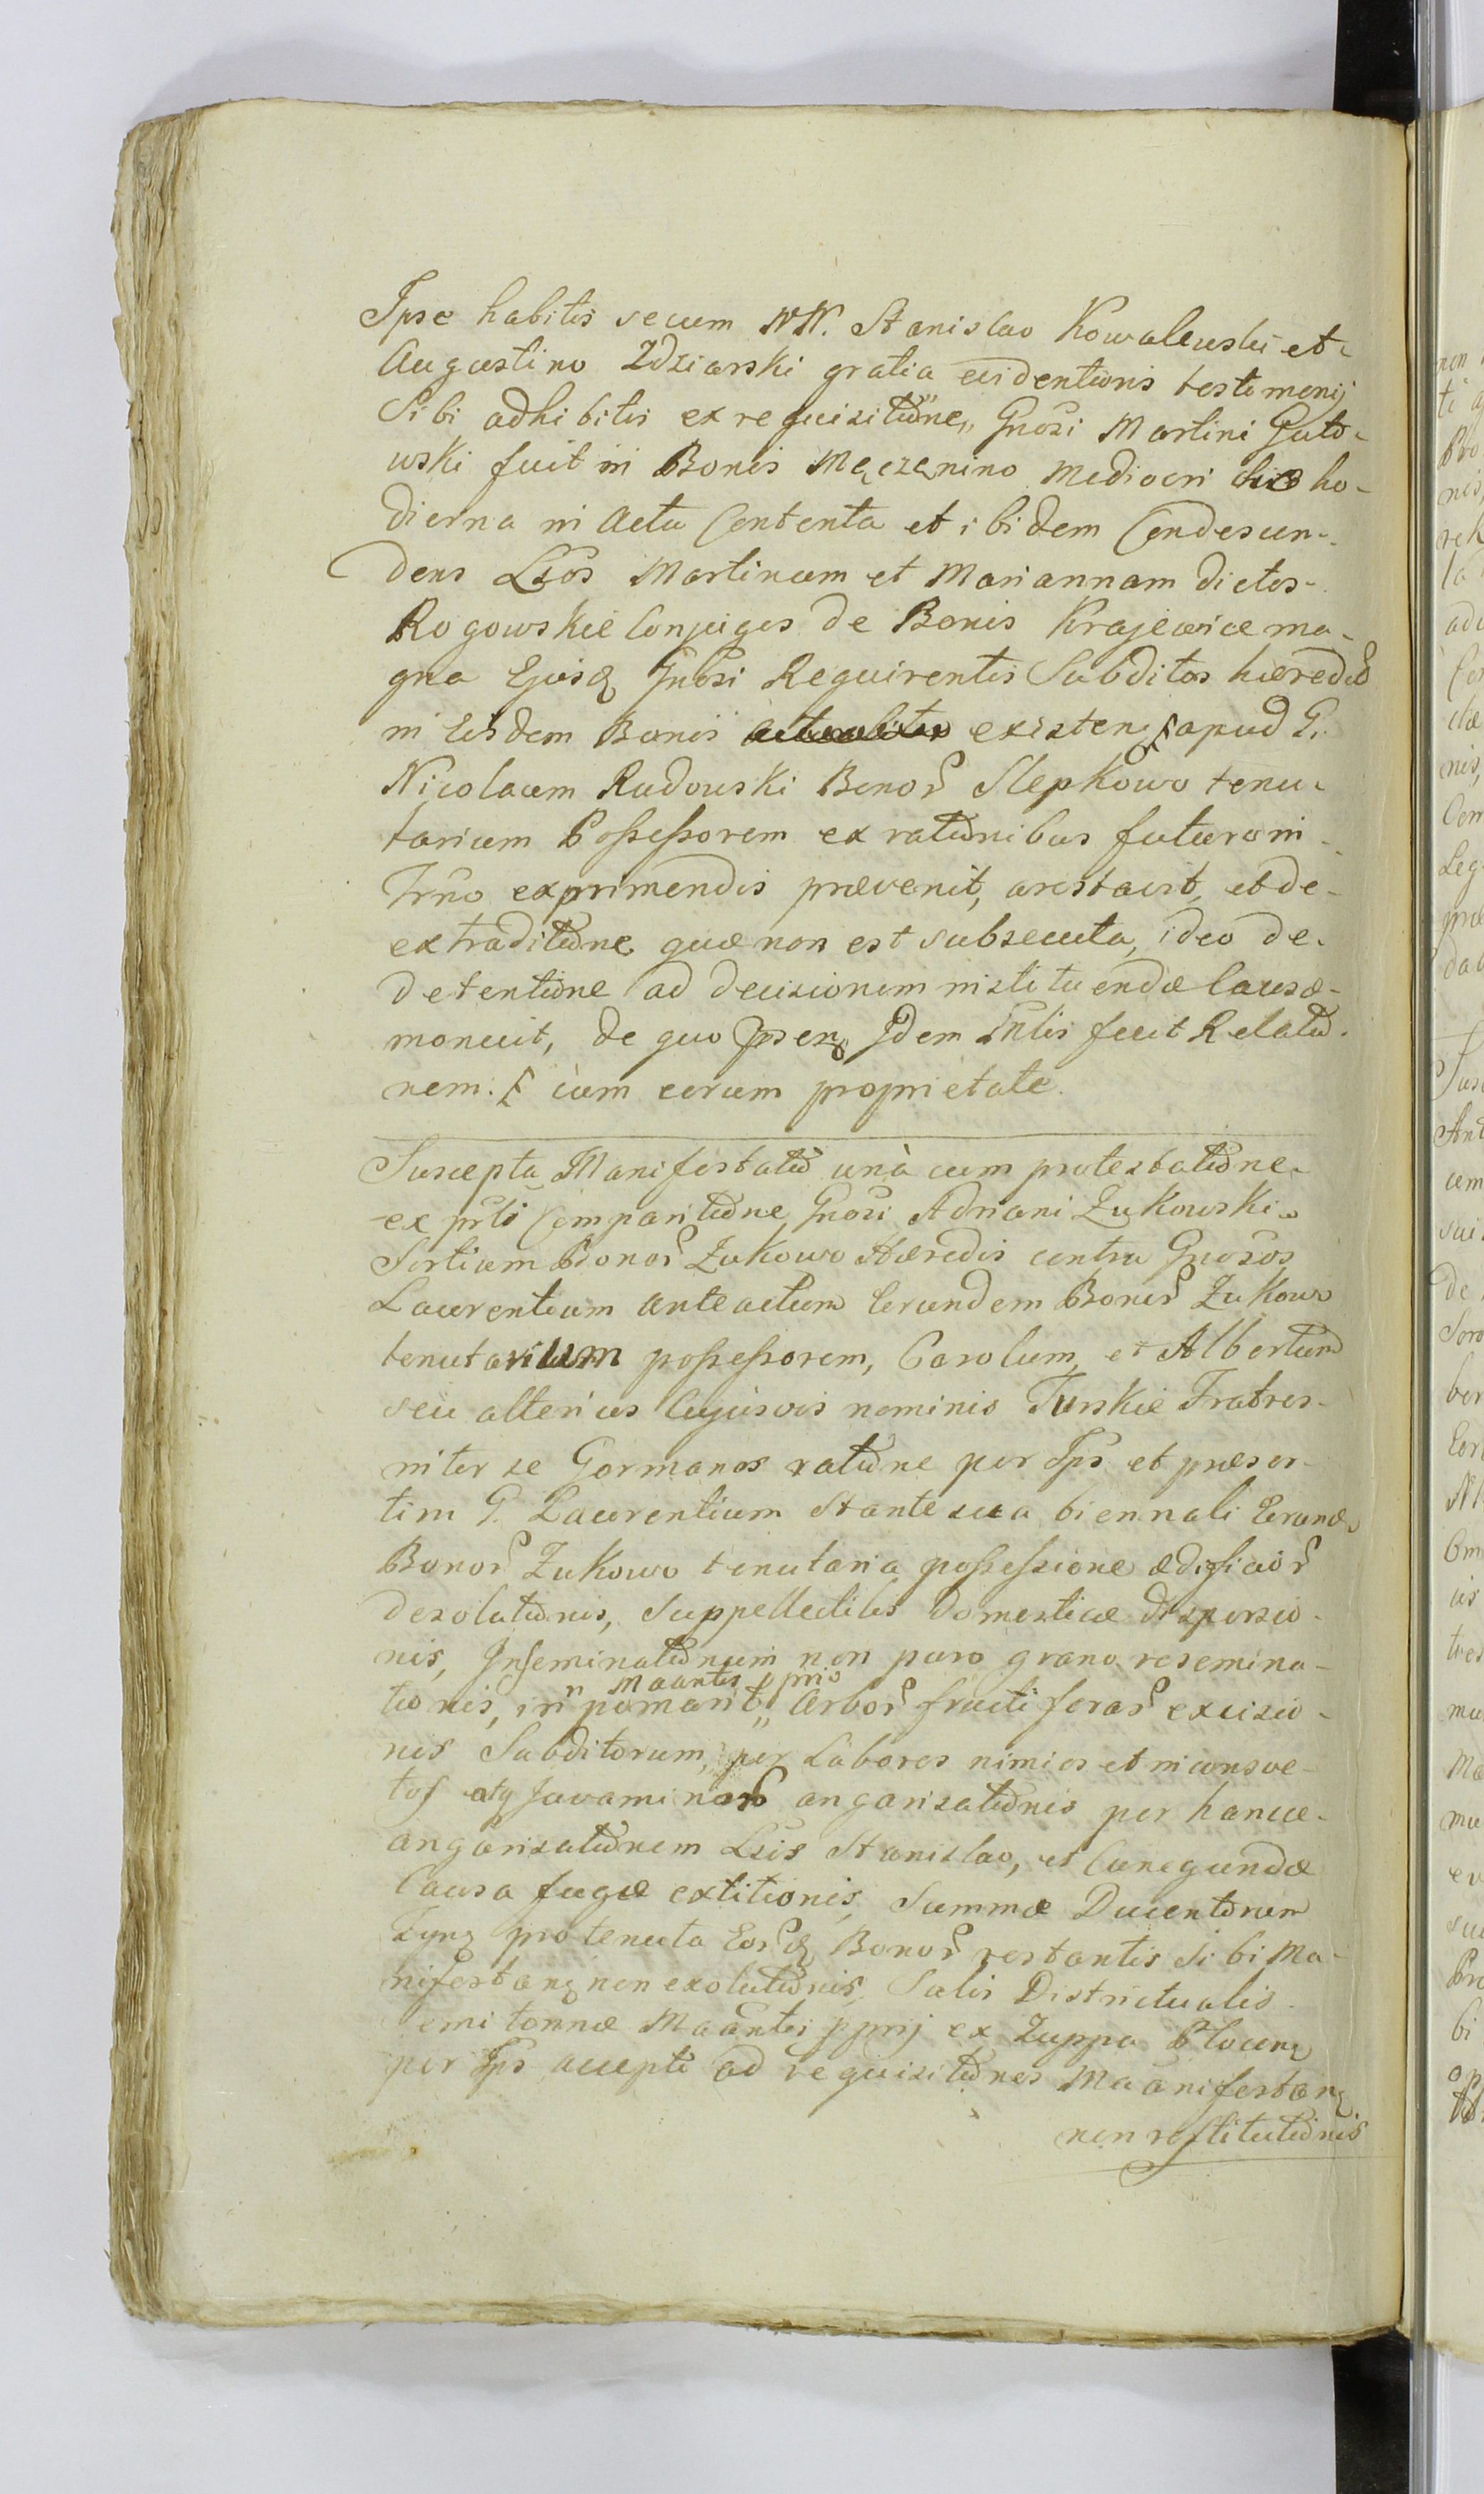 Ipse habitis secum NN. Stanislao Kowalewski et
Augustino Zdziarski gratia evidentioris testimonij
Sibi adhibitis ex requisitione Gnosi Martini Guto-
wski fuit in Bonis Męczenino Mediocri die ho-
dierna in Actu Contenta et ibidem Condescen-
dens Lsos Martinum et Mariannam dictos
Rogowskie Conjuges de Bonis Krajewice ma-
gna Ejusq Gnosi Requirentis Subditos hæred
in Eisdem Bonis existen apud G.
Nicolaum Radowski Bonor Slepkowo tenu-
tarium Possessorem ex rationibus futuro in
Trno exprimendis prævenit, arestavit, et de
extraditione quæ non est subsecuta, ideo de
detentione ad decisionem instituendæ Causæ
monuit, de quo Ipsenq Idem Mlis fecit Relatio-
nem. cum eorum proprietate.
Suscepta Manifestatio unà cum protestatione
ex prti Comparitione Gnosi Adriani Zukowski
Sortium Bonor Zukowo Hæredis contra Gnosos
Laurentium anteactum Eorundem Bonor Zukowo
tenutarium possessorem, Carolum, et Albertum
seu alterius Cujusvis nominis Turskie Fratres
inter se Germanos ratione per Ips et præser-
tim G. Laurentium Stante sua biennali Eorund
Bonor Zukowo tenutaria possessione ædificior
desolationis, Suppellectilis domesticæ dispersio-
nis, Inseminationum non puro grano resemina-
Maantis pprio
tionis, in pomario Arbor fructiferar excisio-
nis Subditorum, per Labores nimios et inconsve-
tos atq Juvaminor angarisationis per hancce
angarisationem Lsis Stanislao, et Cunegundæ
Causa fugæ extitionis, Summæ Ducentorum
pro tenuta Eorq Bonor restantis Sibi Ma-
nifestanq non exolutionis, Salis Districtualis
emi tonnæ Maantis pprij ex Zuppa Plocen
per Ips accepti ad requisitiones Maanifestan
non restitutionis